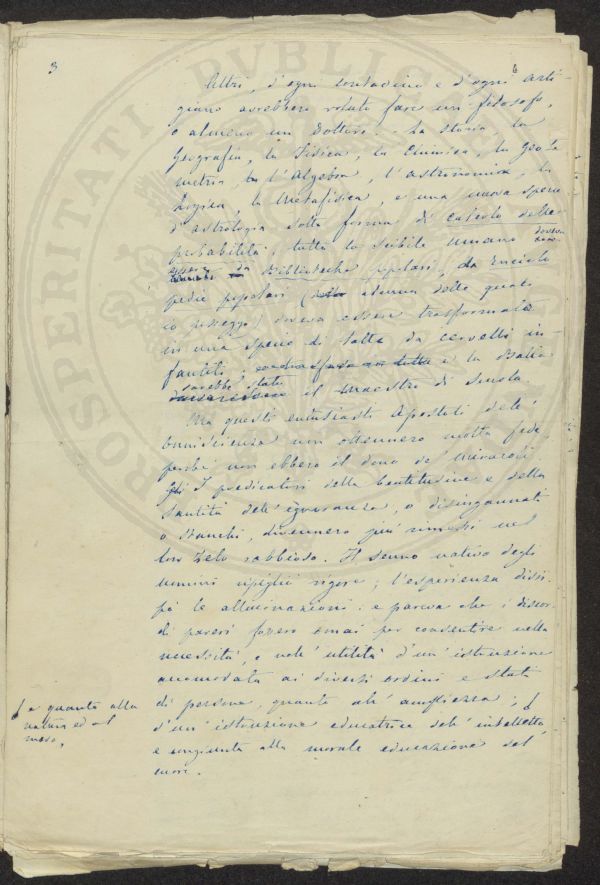 3
6
Altri, d'ogni contadino e d'ogni arti-
giano avrebbero voluto fare un filosofo,
o almeno un Dottore. La Storia, la
Geografia, la Fisica, la Chimica, la Geo-
metria, l'Algebra, l'Astronomia, la
Logica, la Metafisica, e una nuova specie
d'astrologia sotto forma di calcolo delle
probabilità, tutto lo scibile umano doveva
essere da Biblioteche popolari, da Enciclo
pedie popolari (alcuna delle quali
io posseggo) doveva essere trasformato
in una specie di latte da cervelli in-
fantili; e la Balia
sarebbe stato
il Maestro di Scuola.
Ma questi entusiasti Apostoli dell'
onniscienza non ottennero molta fede,
perché non ebbero il dono de' miracoli.
I predicatori della beatitudine e della
Santità dell'ignoranza, o disingannati
o stanchi, divennero più rimessi nel
loro zelo rabbioso. Il senno nativo degli
uomini ripigliò vigore; l'esperienza dissi-
pò le allucinazioni: e pareva che i discor-
di pareri fossero omai per consentire nella
necessità, e nell'utilità d'un'istruzione
accomodata ai diversi ordini e stati
di persone, quanto all'ampiezza;
d'un'istruzione educatrice dell'intelletto
e congiunta alla morale educazione del
cuore.
e quanto alla
natura ed al
modo,
PROSPERITATI PUBLICAE